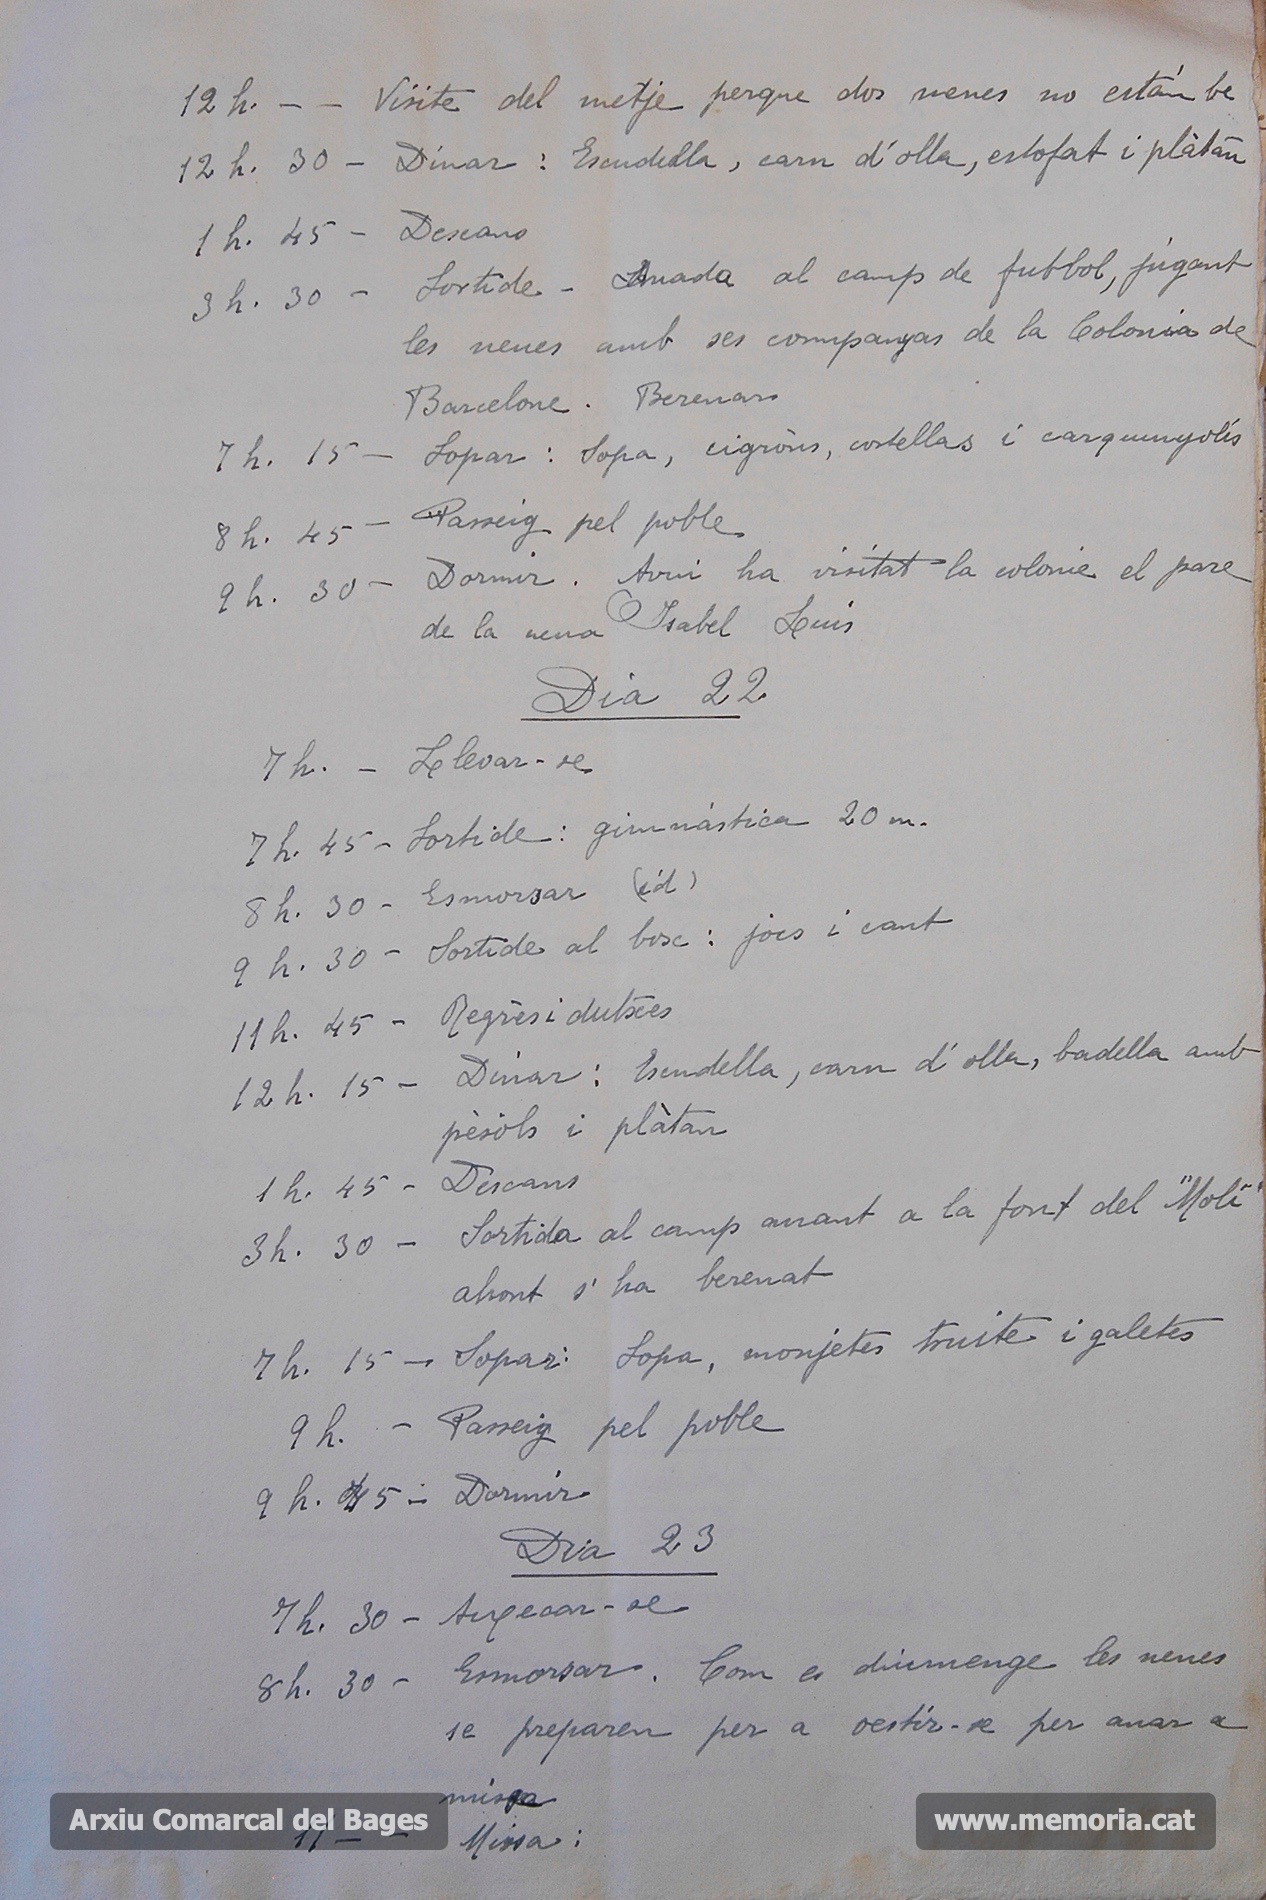 12 h. - - Visite del metje perque dos nenes no están be
12 h. 30 - Dinar : Escudella, carn d'olla, estofat i plàtan
1 h. 45 - Descans
3 h. 30 - Sortide - Anada al camp de futbol, jugant
les nenes amb ses companyas de la Colonia de
Barcelone. Berenars
7 h. 15 - Sopar : Sopa, cigròns, costellas i carquinyolis
8 h. 45 - Passeig pel poble
9 h. 30 - Dormir. Avui ha visitat la colonie el pare
de la nena Isabel Luis
Dia 22
7 h. - Llevar-se
7 h. 45 - Sortide : gimnástica 20 m.
8 h. 30 - Esmorsar (id)
9 h. 30 - Sortide al bosc : jocs i cant
11 h. 45 - Regrès i dutxes
12 h. 15 - Dinar : Escudella, carn d'olla, badella amb
pèsols i plàtan
1 h. 45 - Descans
3 h. 30 - Sortida al camp anant a la font del "Molí"
ahont s'ha berenat
7 h. 15 - Sopar : Sopa, monjetes truite i galetes
9 h. - Passeig pel poble
9 h. 45 - Dormir
Dia 23
7 h. 30 - Axecar-se
8 h. 30 - Esmorsar. Com es diumenge les nenes
se preparen per a vestir-se per anar a
missa
11 - - Missa :
Arxiu Comarcal del Bages
www.memoria.cat